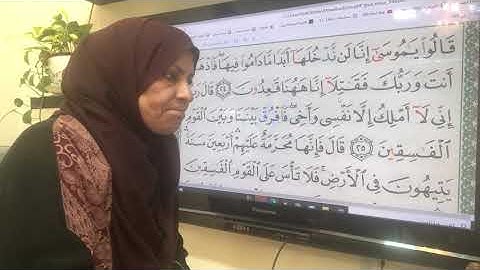 قَالُوا۟ يَـٰمُوسَىٰٓ إِنَّا لَن نَّدْخُلَهَآ أَبَدًا مَّا دَامُوا۟ فِيهَا ۖ فَٱذْهَبْ
أَنتَ وَرَبُّكَ فَقَـٰتِلَآ إِنَّا هَـٰهُنَا قَـٰعِدُونَ ٢٤ قَالَ رَبِّ
إِنِّى لَآ أَمْلِكُ إِلَّا نَفْسِى وَأَخِى ۖ فَٱفْرُقْ بَيْنَنَا وَبَيْنَ ٱلْقَوْمِ
ٱلْفَـٰسِقِينَ ٢٥ قَالَ فَإِنَّهَا مُحَرَّمَةٌ عَلَيْهِمْ ۛ أَرْبَعِينَ سَنَةً ۛ
يَتِيهُونَ فِى ٱلْأَرْضِ ۚ فَلَا تَأْسَ عَلَى ٱلْقَوْمِ ٱلْفَـٰسِقِينَ
Panasonic